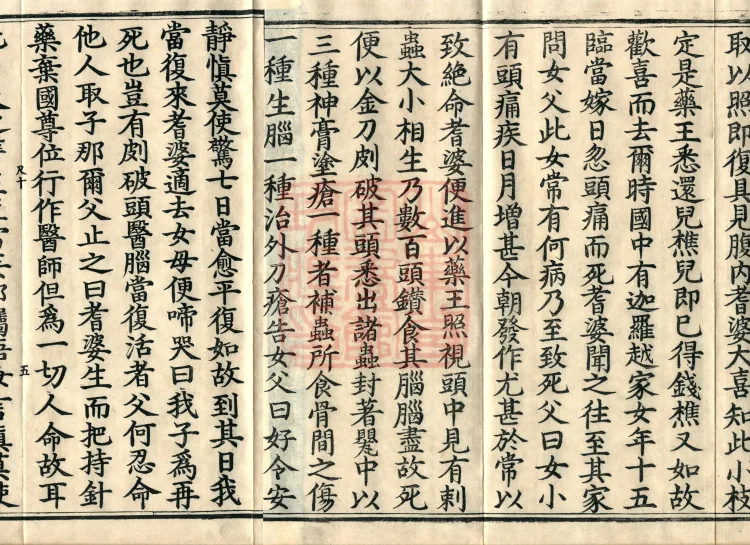 取以照即復具見腹內耆婆大喜知此小枝
定是藥王悉還兒樵兒即已得錢樵又如故
歡喜而去爾時國中有迦羅越家女年十五
臨當嫁日忽頭痛而死耆婆聞之往至其家
問女父此女常有何病乃至致死父曰女小
有頭痛疾日月增甚今朝發作尤甚於常以
致絕命耆婆便進以藥王照視頭中見有刺
蟲大小相生乃數百頭鑽食其腦腦盡故死
便以金刀㓟破其頭悉出諸蟲封著甖中以
三種神膏塗瘡一種者補蟲所食骨間之傷
一種生腦一種治外刀瘡告女父曰好令安
靜愼莫使驚七日當愈平復如故到其日我
當復來耆婆適去女母便啼哭曰我子爲再
死也豈有㓟破頭醫腦當復活者父何忍命
他人取子那爾父止之曰耆婆生而把持針
藥棄國尊位行作醫師但爲一切人命故耳
尺十
五